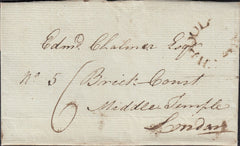 Edmd. Chalmer Esqr.
No 5 Brick Court
6 Middle Temple
London